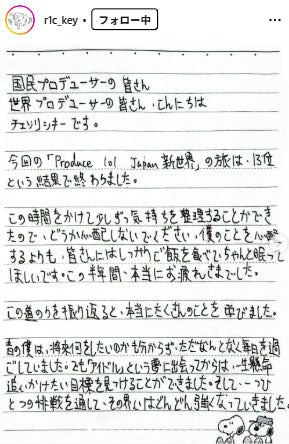 r1c_key • フォロー中
国民プロデューサーの皆さん
世界プロデューサーの皆さん、こんにちは
チェリシキーです。
今回の「Produce 101 Japan 新世界」の旅は、13位
という結果で終わりました。
この時間をかけて少しずつ気持ちを整理することができ
たので、どうか心配しないでください、僕のことを心配
するよりも、皆さんにはしっかりご飯を食べて、ちゃんと眠って
ほしいです。この半年間、本当にお疲れさまでした。
この道のりを振り返ると、本当にたくさんのことを学びました。
前の僕は、将来何をしたいのかも分からず、ただなんとなく毎日を過
ごしていました。でも「アイドル」という夢に出会ってからは、一生懸命
追いかけたい目標を見つけることができました。そして、一つひ
とつの挑戦を通して、その思いはどんどん強くなっていきました。